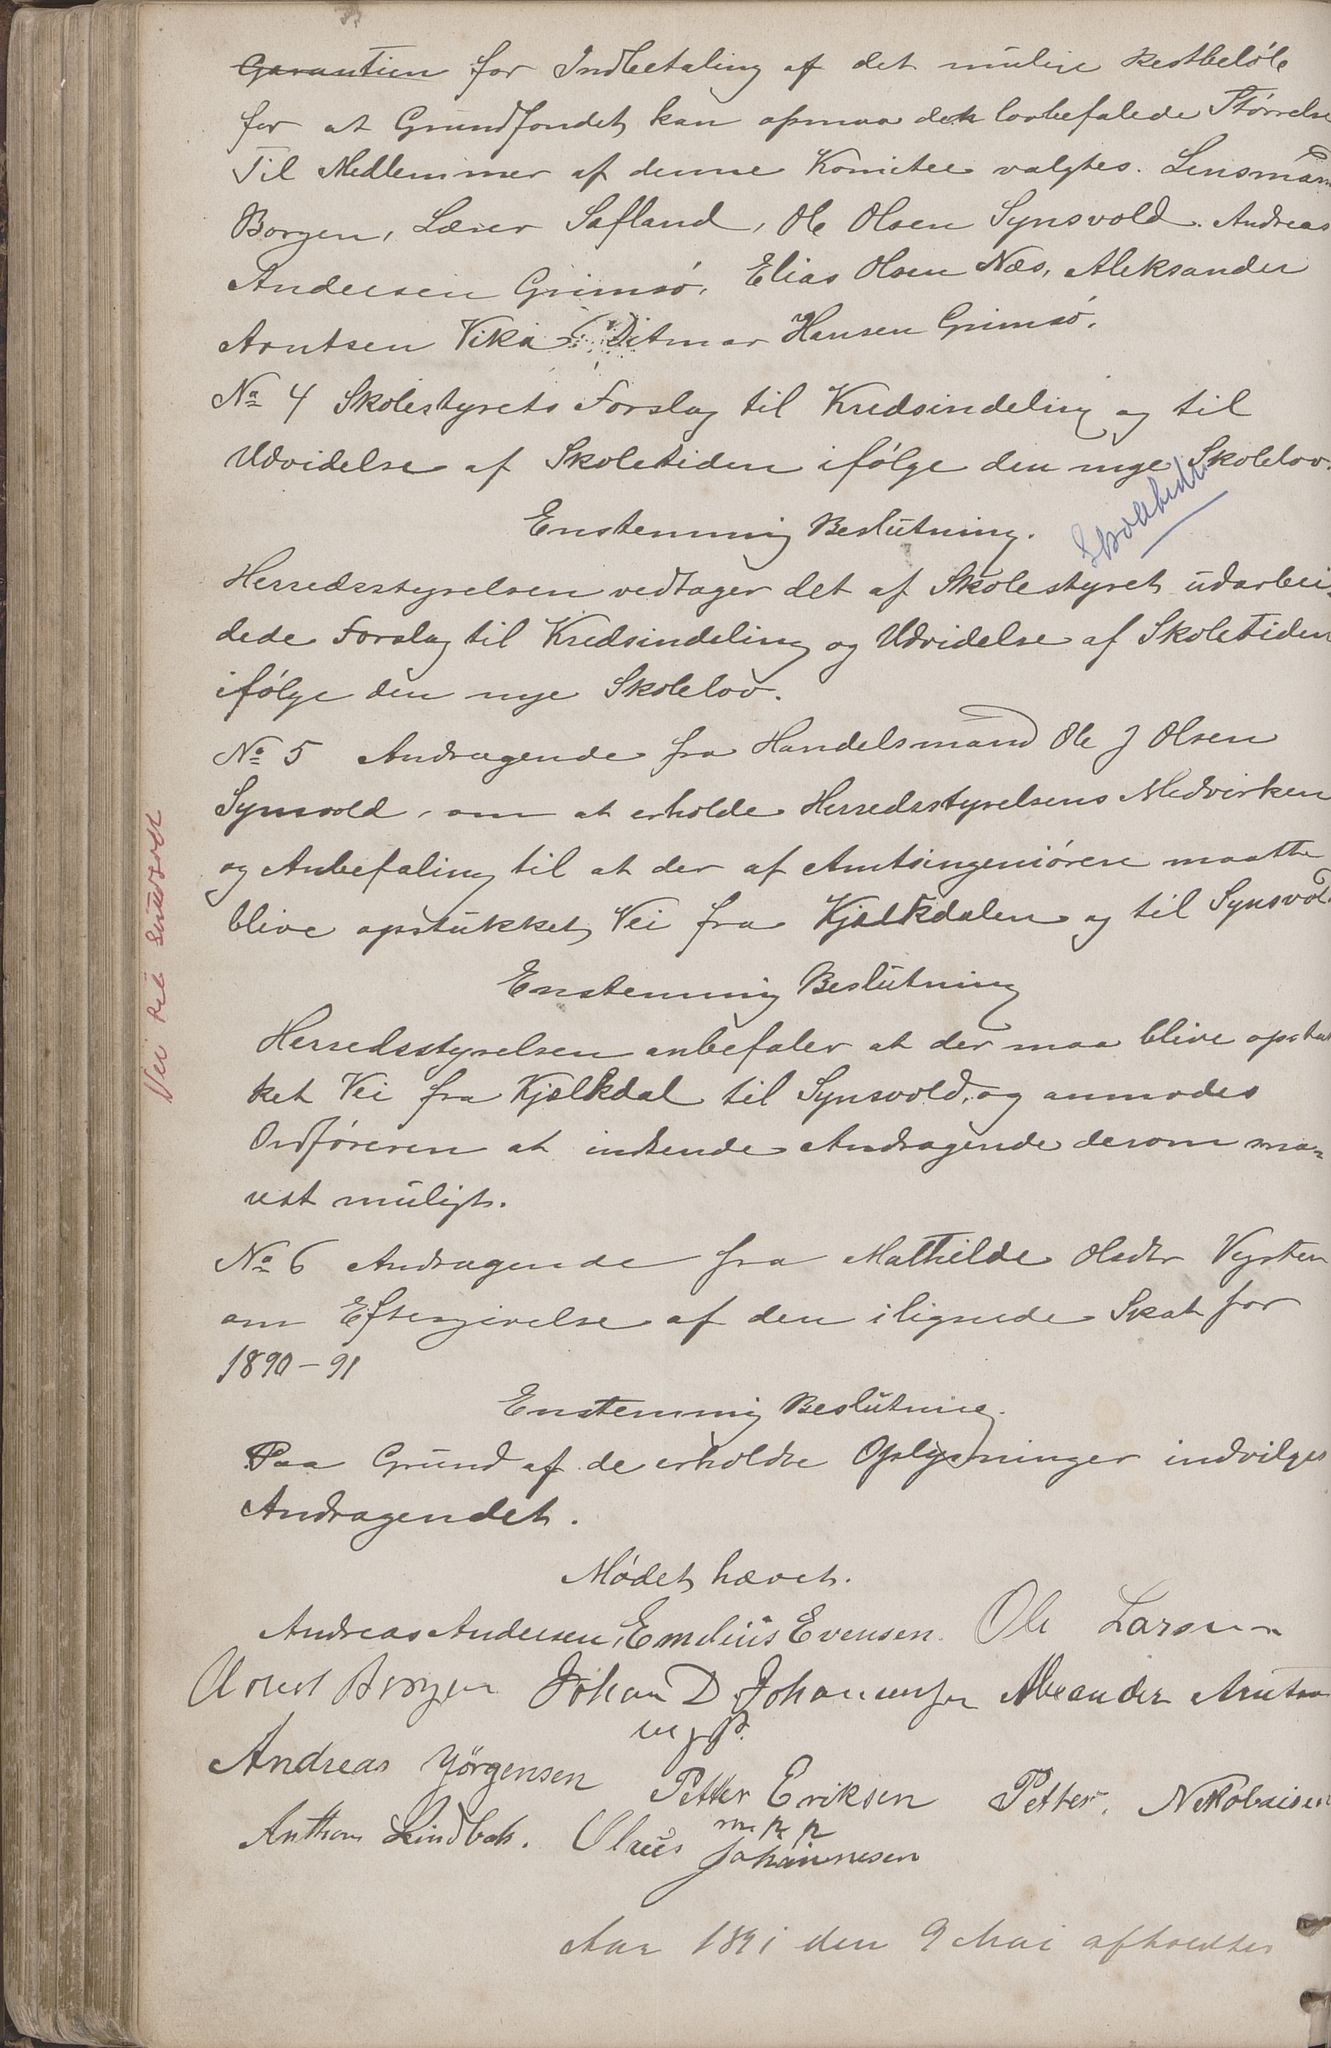 Garantien for Indbetaling af det mulige Restbeløb
for at Grundfondet kan opnaa den lovbefalede Størrelse
Til Medlemmer af denne Komitee valgtes. Lensmand
Borgen, Lærer Safland, Ole Olsen Synsvold. Andreas
Andersen Grimsø, Elias Olsen Næs, Aleksander
Arntsen Vika, Ditmar Hansen Grimsø.
No 4 Skolestyrets Forslag til Kredsindeling og til
Udvidelse af Skoletiden ifølge den nye Skolelov.
Enstemmig Beslutning.
Herredsstyrelsen vedtager det af Skolestyret udarbei-
dede Forslag til Kredsindeling og Udvidelse af Skoletiden
ifølge den nye Skolelov.
No 5 Andragende fra Handelsmand Ole J Olsen
Synsvold, om at erholde Herredsstyrelsens Medvirken
og Anbefaling til at der af Amtsingeniøren maatte
blive opstukket Vei fra Kjælkdalen og til Synsvold
Vei til Sinsvold
Enstemmig Beslutning
Herredsstyrelsen anbefaler at der maa blive opstuk
ket Vei fra Kjælkdal til Synsvold, og anmodes
Ordføreren at indsende Andragende derom sna-
rest muligt.
No 6 Andragende fra Mathilde Olsdtr Vgsten
om Eftergivelse af den ilignede Skat for
1890-91
Enstemmig Beslutning.
Paa Grund af de erholdte Oplysninger indvilges
Andragendet.
Mødet hævet.
Andreas Andersen, Emelius Evensen. Ole Larsen
Borgen Johan D Johannesen Alexander Arntsen
Andreas Jørgensen Petter Eriksen Petter Nikolaisen
m p p
Anthon Lindbak. Olaus Johannesen
Aar 1891 den 9 Mai afholdtes